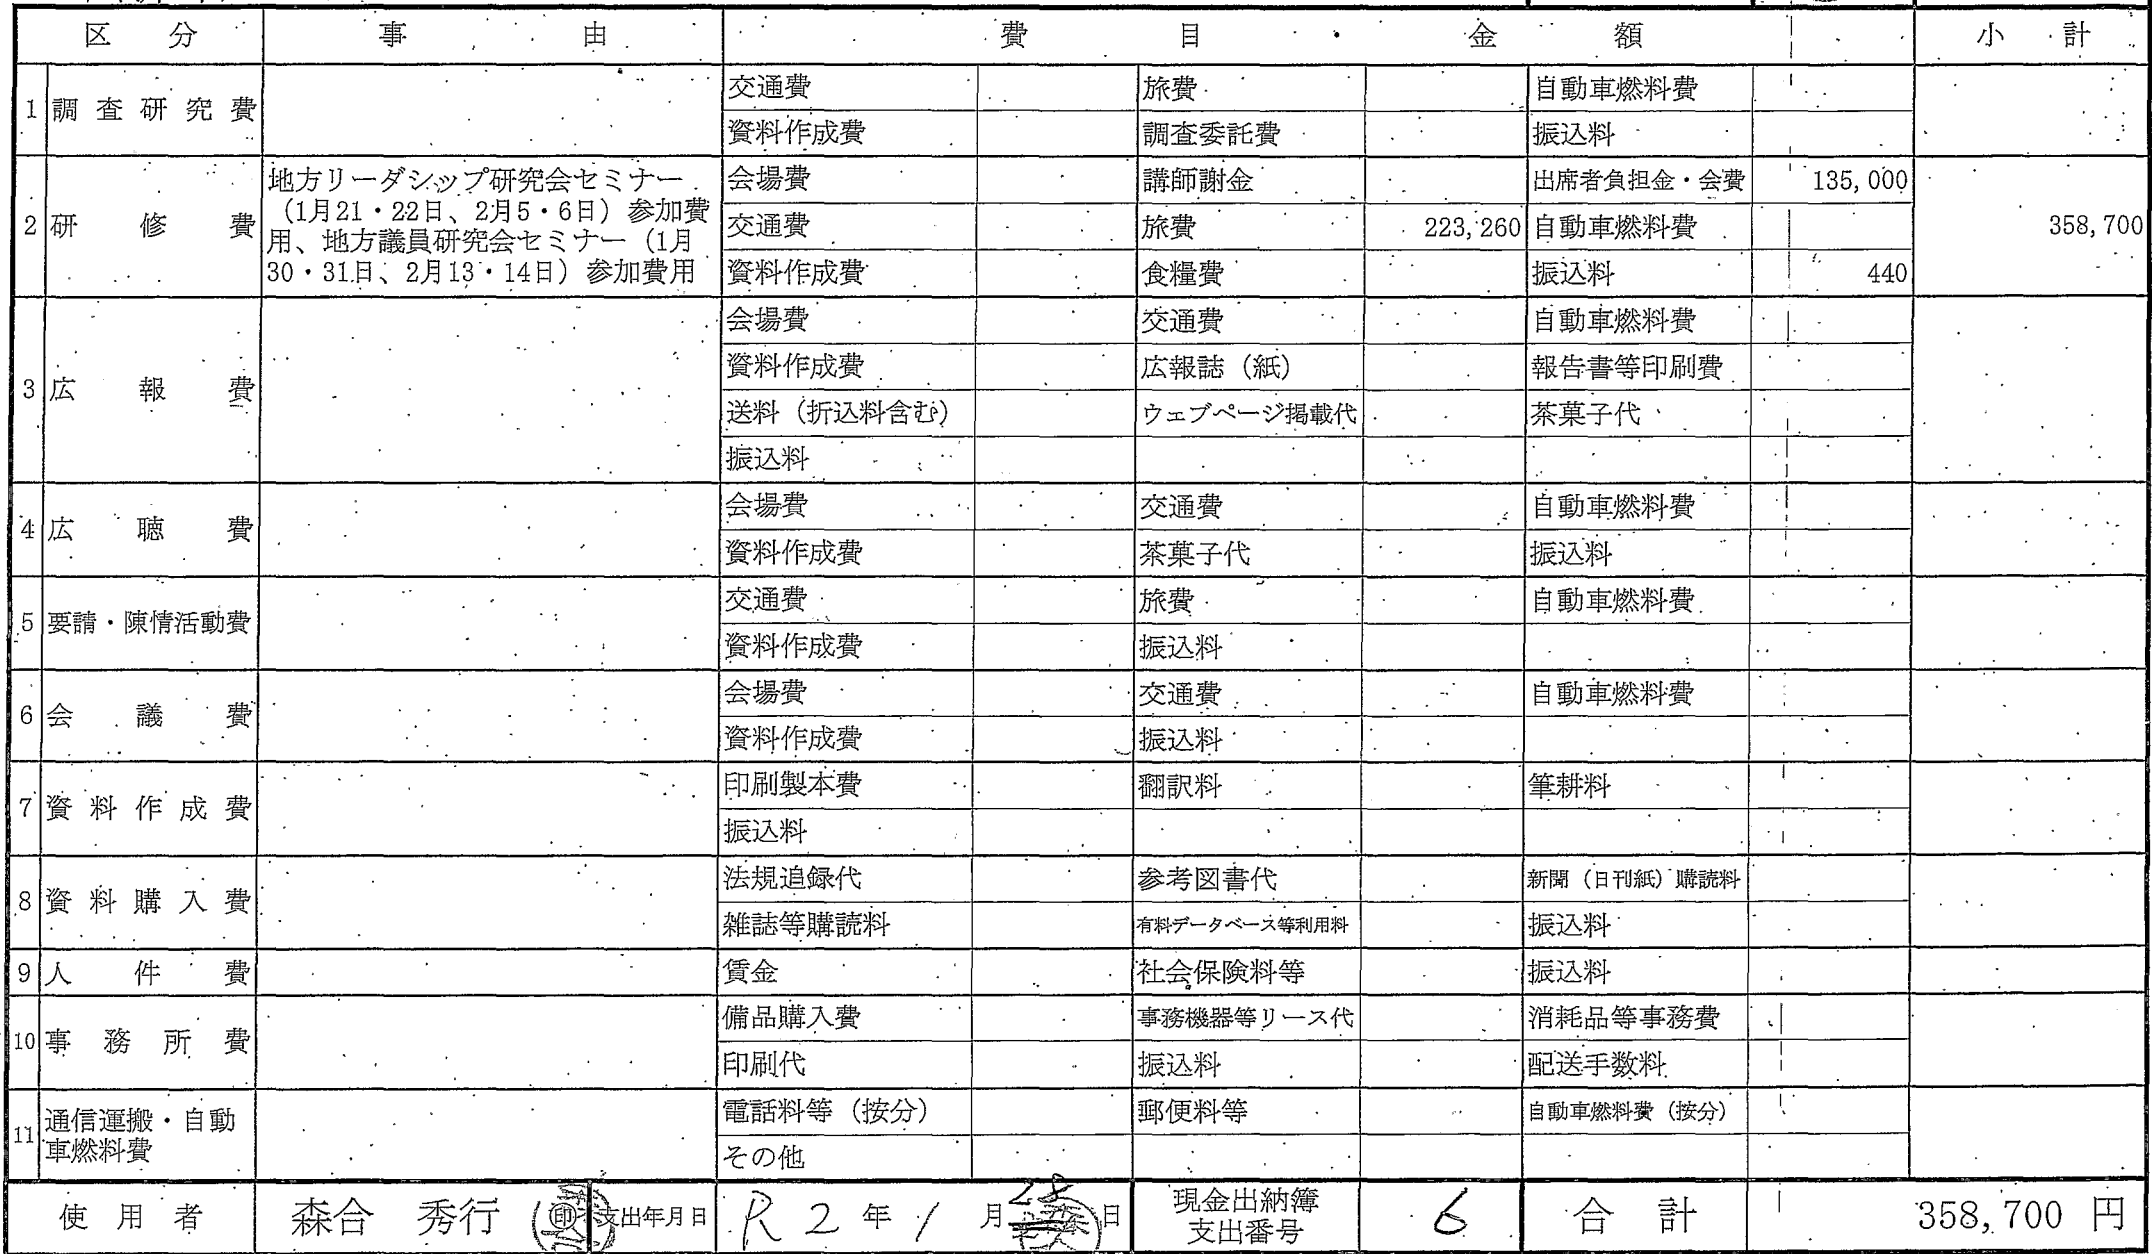 区 分 事 由 費 目 ・ 金 額 小 計
1 調査研究費 交通費 旅費 自動車燃料費
資料作成費 調査委託費 振込料
2 研修費 地方リーダシップ研究会セミナー
（1月21・22日、2月5・6日）参加費
用、地方議員研究会セミナー（1月
30・31日、2月13・14日）参加費用
会場費 講師謝金 出席者負担金・会費 135,000
交通費 旅費 223,260 自動車燃料費 358,700
資料作成費 食糧費 振込料 440
3 広報費 会場費 交通費 自動車燃料費
資料作成費 広報誌（紙） 報告書等印刷費
送料（折込料含む） ウェブページ掲載代 茶菓子代
振込料
4 広聴費 会場費 交通費 自動車燃料費
資料作成費 茶菓子代 振込料
5 要請・陳情活動費 交通費 旅費 自動車燃料費
資料作成費 振込料
6 会議費 会場費 交通費 自動車燃料費
資料作成費 振込料
7 資料作成費 印刷製本費 翻訳料 筆耕料
振込料
8 資料購入費 法規追録代 参考図書代 新聞（日刊紙）購読料
雑誌等購読料 有料データベース等利用料 振込料
9 人件費 賃金 社会保険料等 振込料
10 事務所費 備品購入費 事務機器等リース代 消耗品等事務費
印刷代 振込料 配送手数料
11 通信運搬・自動
車燃料費
電話料等（按分） 郵便料等 自動車燃料費（按分）
その他
使用者 森合 秀行 ㊞ 支出年月日 R2年1月28日 現金出納簿
支出番号 6 合計 358,700 円